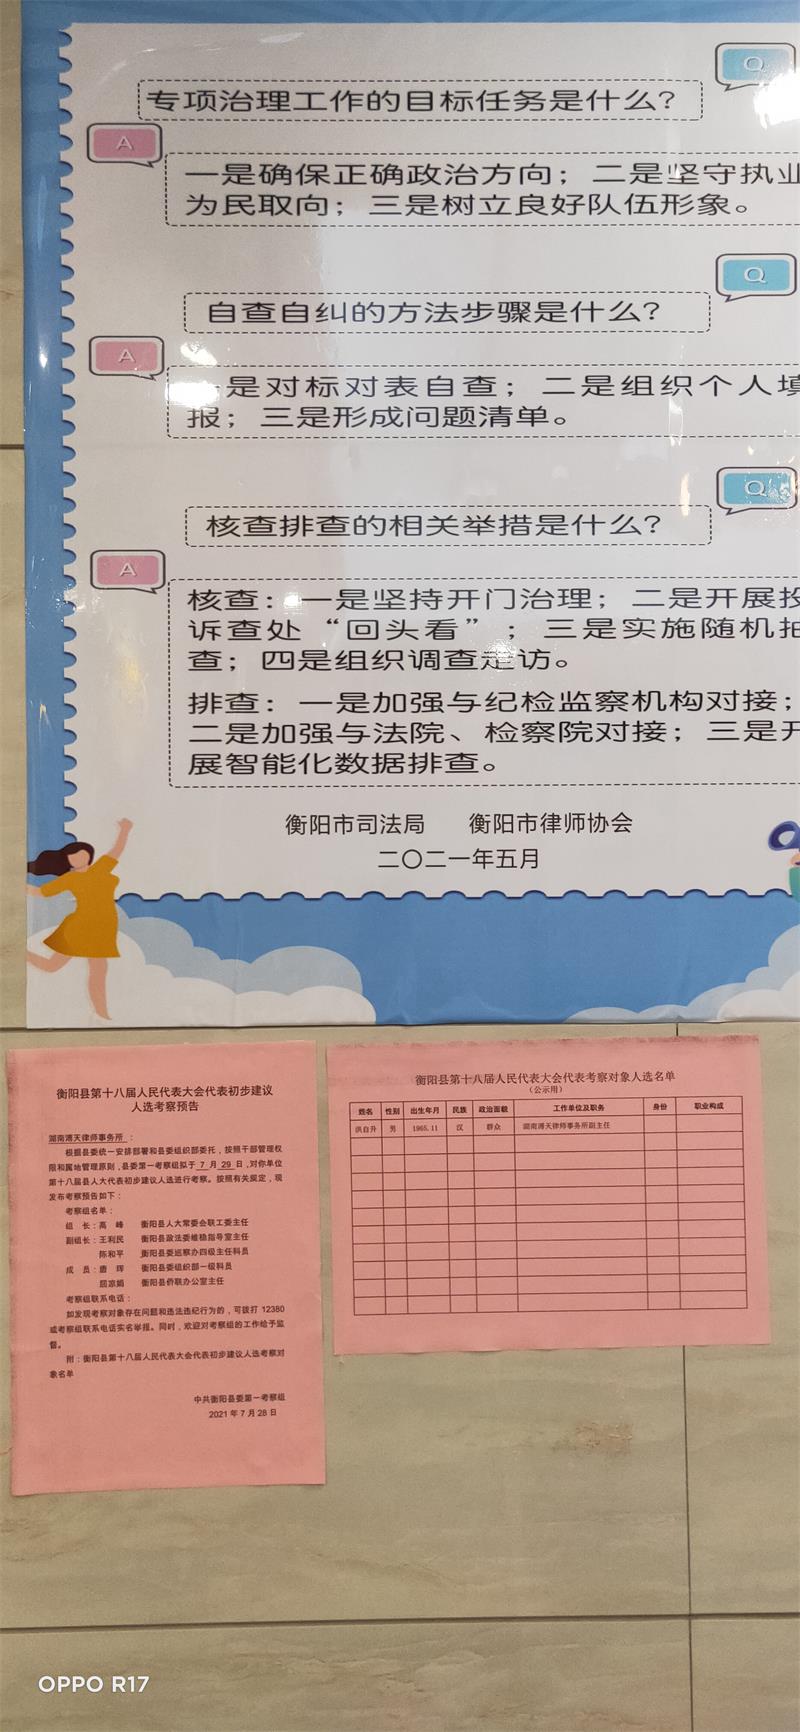 Q
专项治理工作的目标任务是什么?
A
一是确保正确政治方向；二是坚守执业
为民取向；三是树立良好队伍形象。
Q
自查自纠的方法步骤是什么?
A
一是对标对表自查；二是组织个人填
报；三是形成问题清单。
Q
核查排查的相关举措是什么?
A
核查：一是坚持开门治理；二是开展投
诉查处“回头看”；三是实施随机抽
查；四是组织调查走访。
排查：一是加强与纪检监察机构对接；
二是加强与法院、检察院对接；三是开
展智能化数据排查。
衡阳市司法局 衡阳市律师协会
二〇二一年五月
衡阳县第十八届人民代表大会代表初步建议
人选考察预告
湖南溥天律师事务所：
根据县委统一安排部署和县委组织部委托，按照干部管理权
限和属地管理原则，县委第一考察组拟于 7 月 29 日，对你单位
第十八届县人大代表初步建议人选进行考察。按照有关规定，现
发布考察预告如下：
考察组名单：
组 长：高 峰 衡阳县人大常委会联工委主任
副组长：王利民 衡阳县政法委维稳指导室主任
陈和平 衡阳县委巡察办四级主任科员
成 员：唐 珲 衡阳县委组织部一级科员
屈凉娟 衡阳县侨联办公室主任
考察组联系电话：
如发现考察对象存在问题和违法违纪行为的，可拨打 12380
或考察组联系电话实名举报。同时，欢迎对考察组的工作给予监
督。
附：衡阳县第十八届人民代表大会代表初步建议人选考察对
象名单
中共衡阳县委第一考察组
2021 年 7 月 28 日
衡阳县第十八届人民代表大会代表考察对象人选名单
（公示用）
姓名 性别 出生年月 民族 政治面貌 工作单位及职务 身份 职业构成
洪自升 男 1965.11 汉 群众 湖南溥天律师事务所副主任
OPPO R17